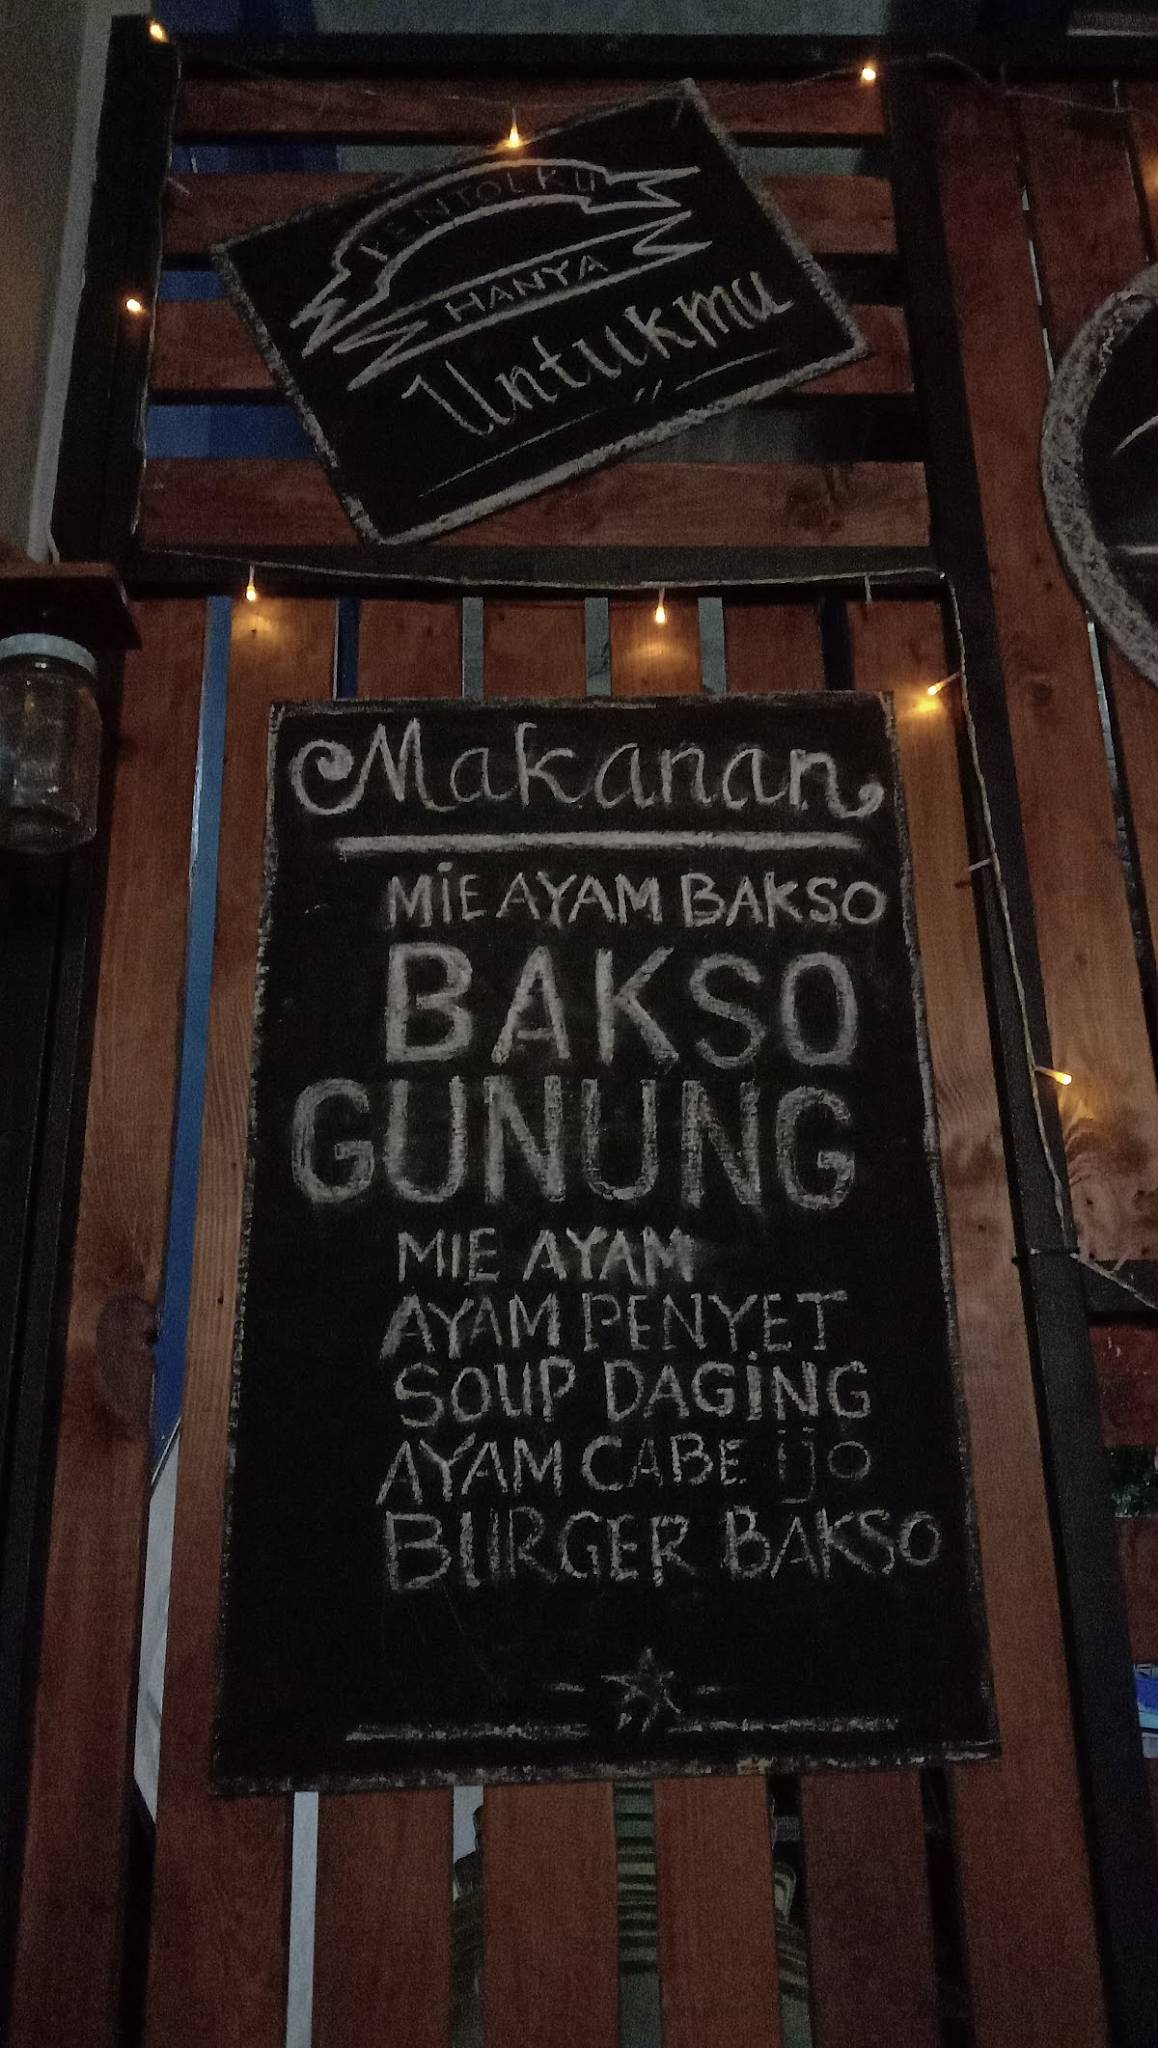 PENTOLKU
HANYA
Untukmu
Makanan
MiE AYAM BAKSO
BAKSO
GUNUNG
MIE AYAM
AYAM PENYET
SOUP DAGiNG
AYAM CABE ijo
BURGER BAKSO